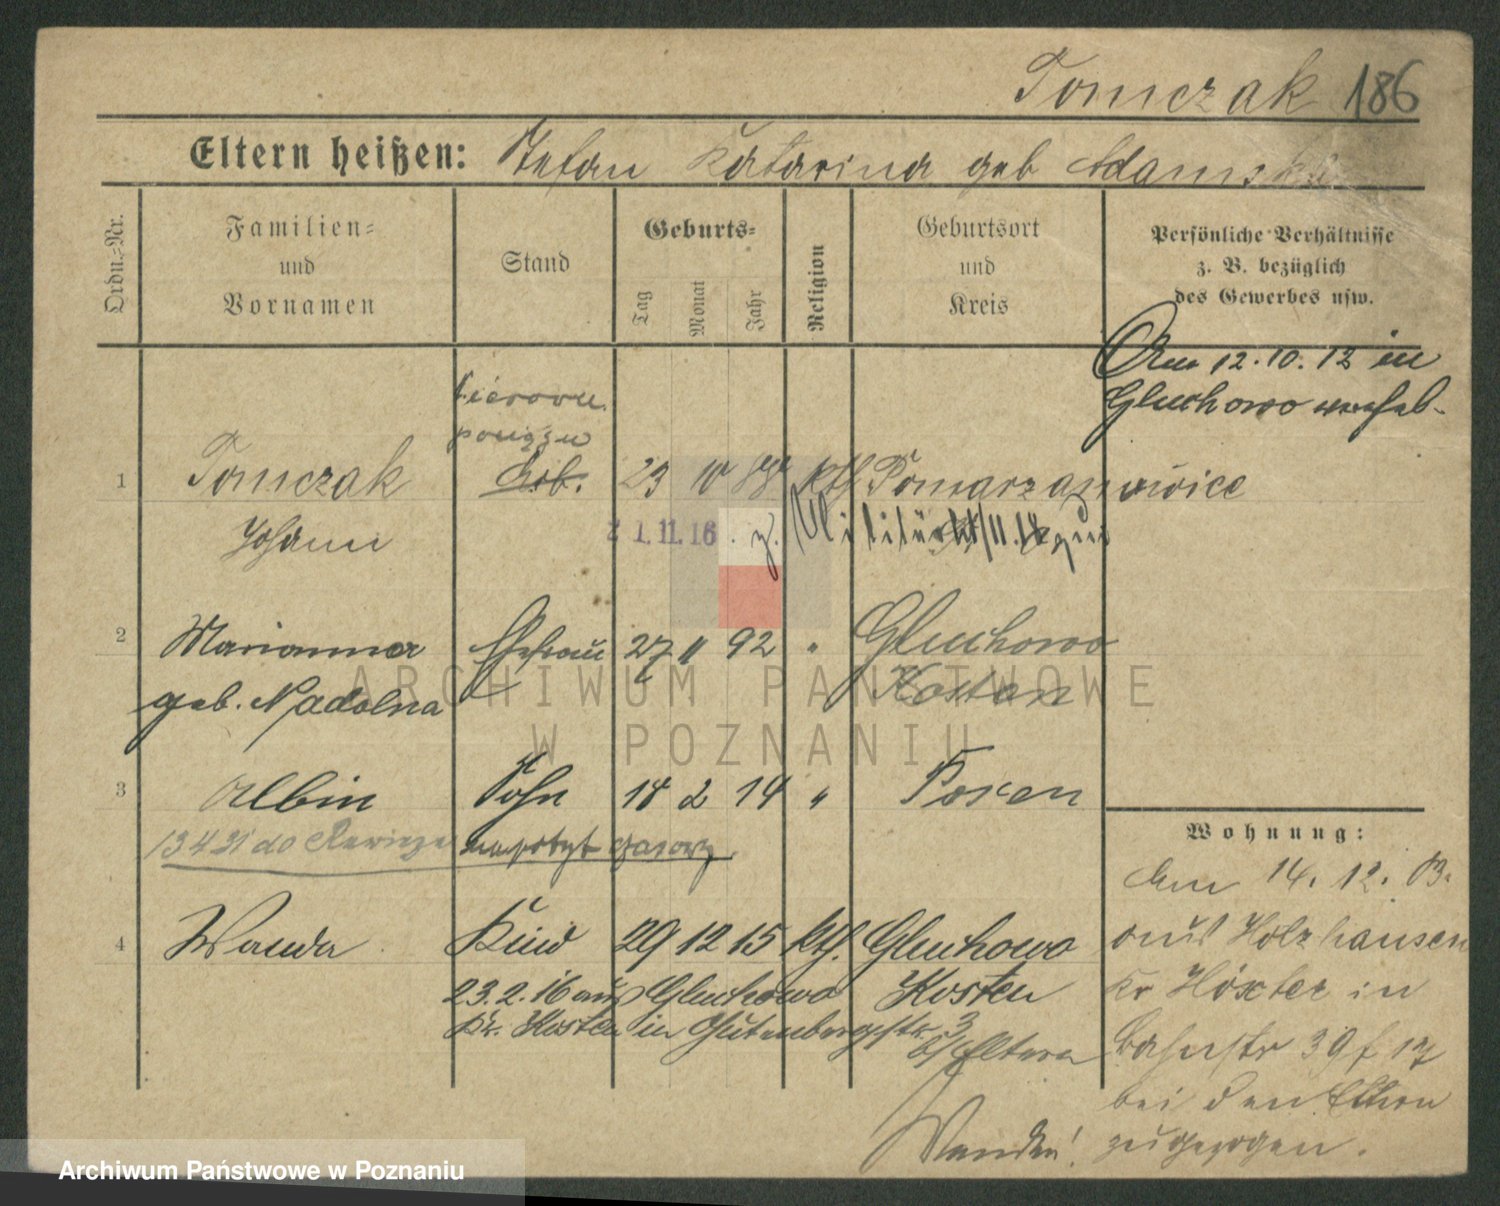 Tomczak 186
Eltern heißen: Stefan Katarina geb Adamska
Ordn.-Nr.
Familien-
und
Vornamen
Stand
Geburts-
Tag
Monat
Jahr
Religion
Geburtsort
und
Kreis
Persönliche Verhältnisse
z. B. bezüglich
des Gewerbes usw.
Am 12.10.12 in
Gluchowo
1 Tomczak Arb. 23 10 88 ktl
Johann
1.11.16 z. Militär
2 Marianna Ehefrau 27 11 92 " Gluchowo
geb. Nadolna Kosten
3 Albin Sohn 18 2 14 " Posen
13 4 31 do czasowy
4 Wanda Kind 29 12 15 ktl. Gluchowo
Kosten
23.2.16 aus Gluchowo
Kr. Kosten in Gutenbergstr. 3
b/Eltern
Wohnung:
Am 14. 12. 13.
aus Holzhausen
Kr Höxter in
Bahnstr 39 f 17
bei den Eltern
zugezogen.
ARCHIWUM PAŃSTWOWE
W POZNANIU
Archiwum Państwowe w Poznaniu